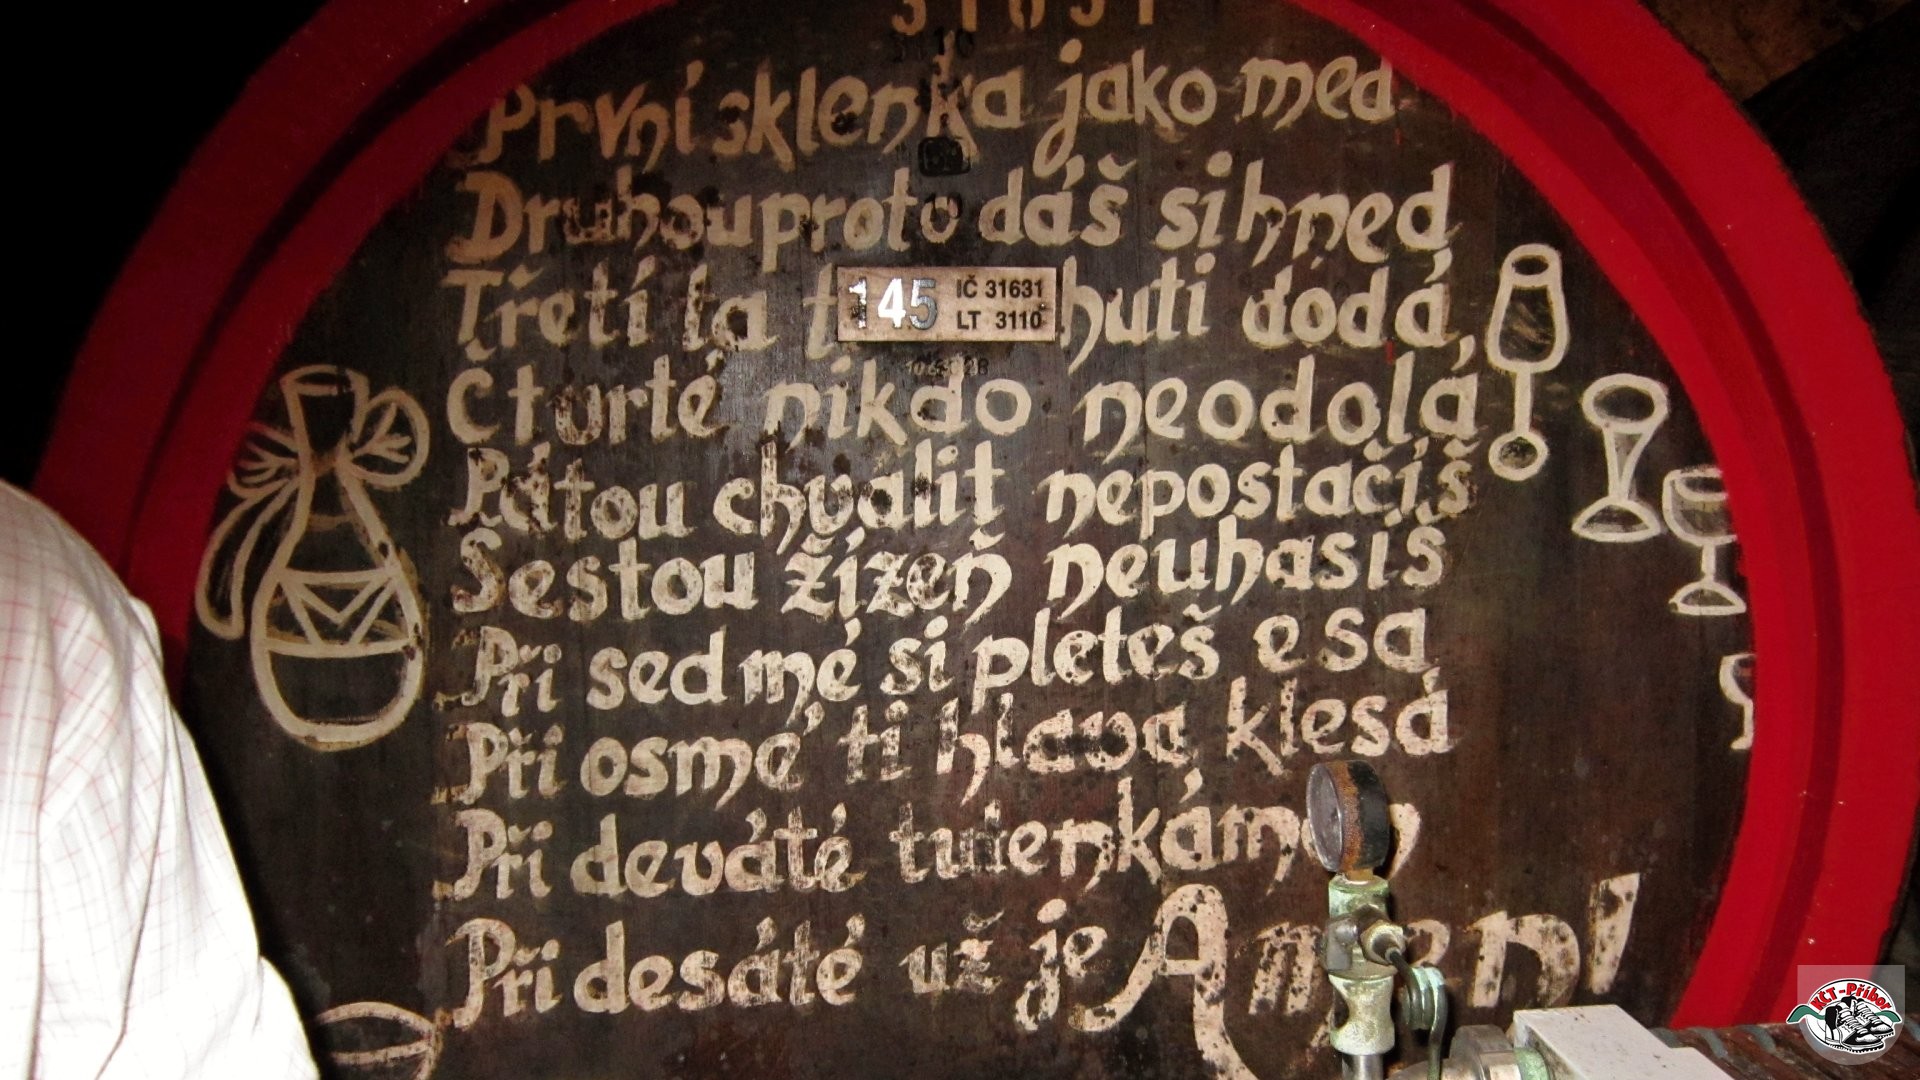 První sklenka jako med
Druhou proto dáš si hned
Třetí ta t chuti dodá,
145 IČ 31631
LT 3110
Čtvrté nikdo neodolá
Pátou chválit nepostačíš
Šestou žízeň neuhasíš
Při sedmé si pleteš esa
Při osmé ti hlava klesá
Při deváté tuten kámen
Při desáté už je Amen!
KČT-Příbor